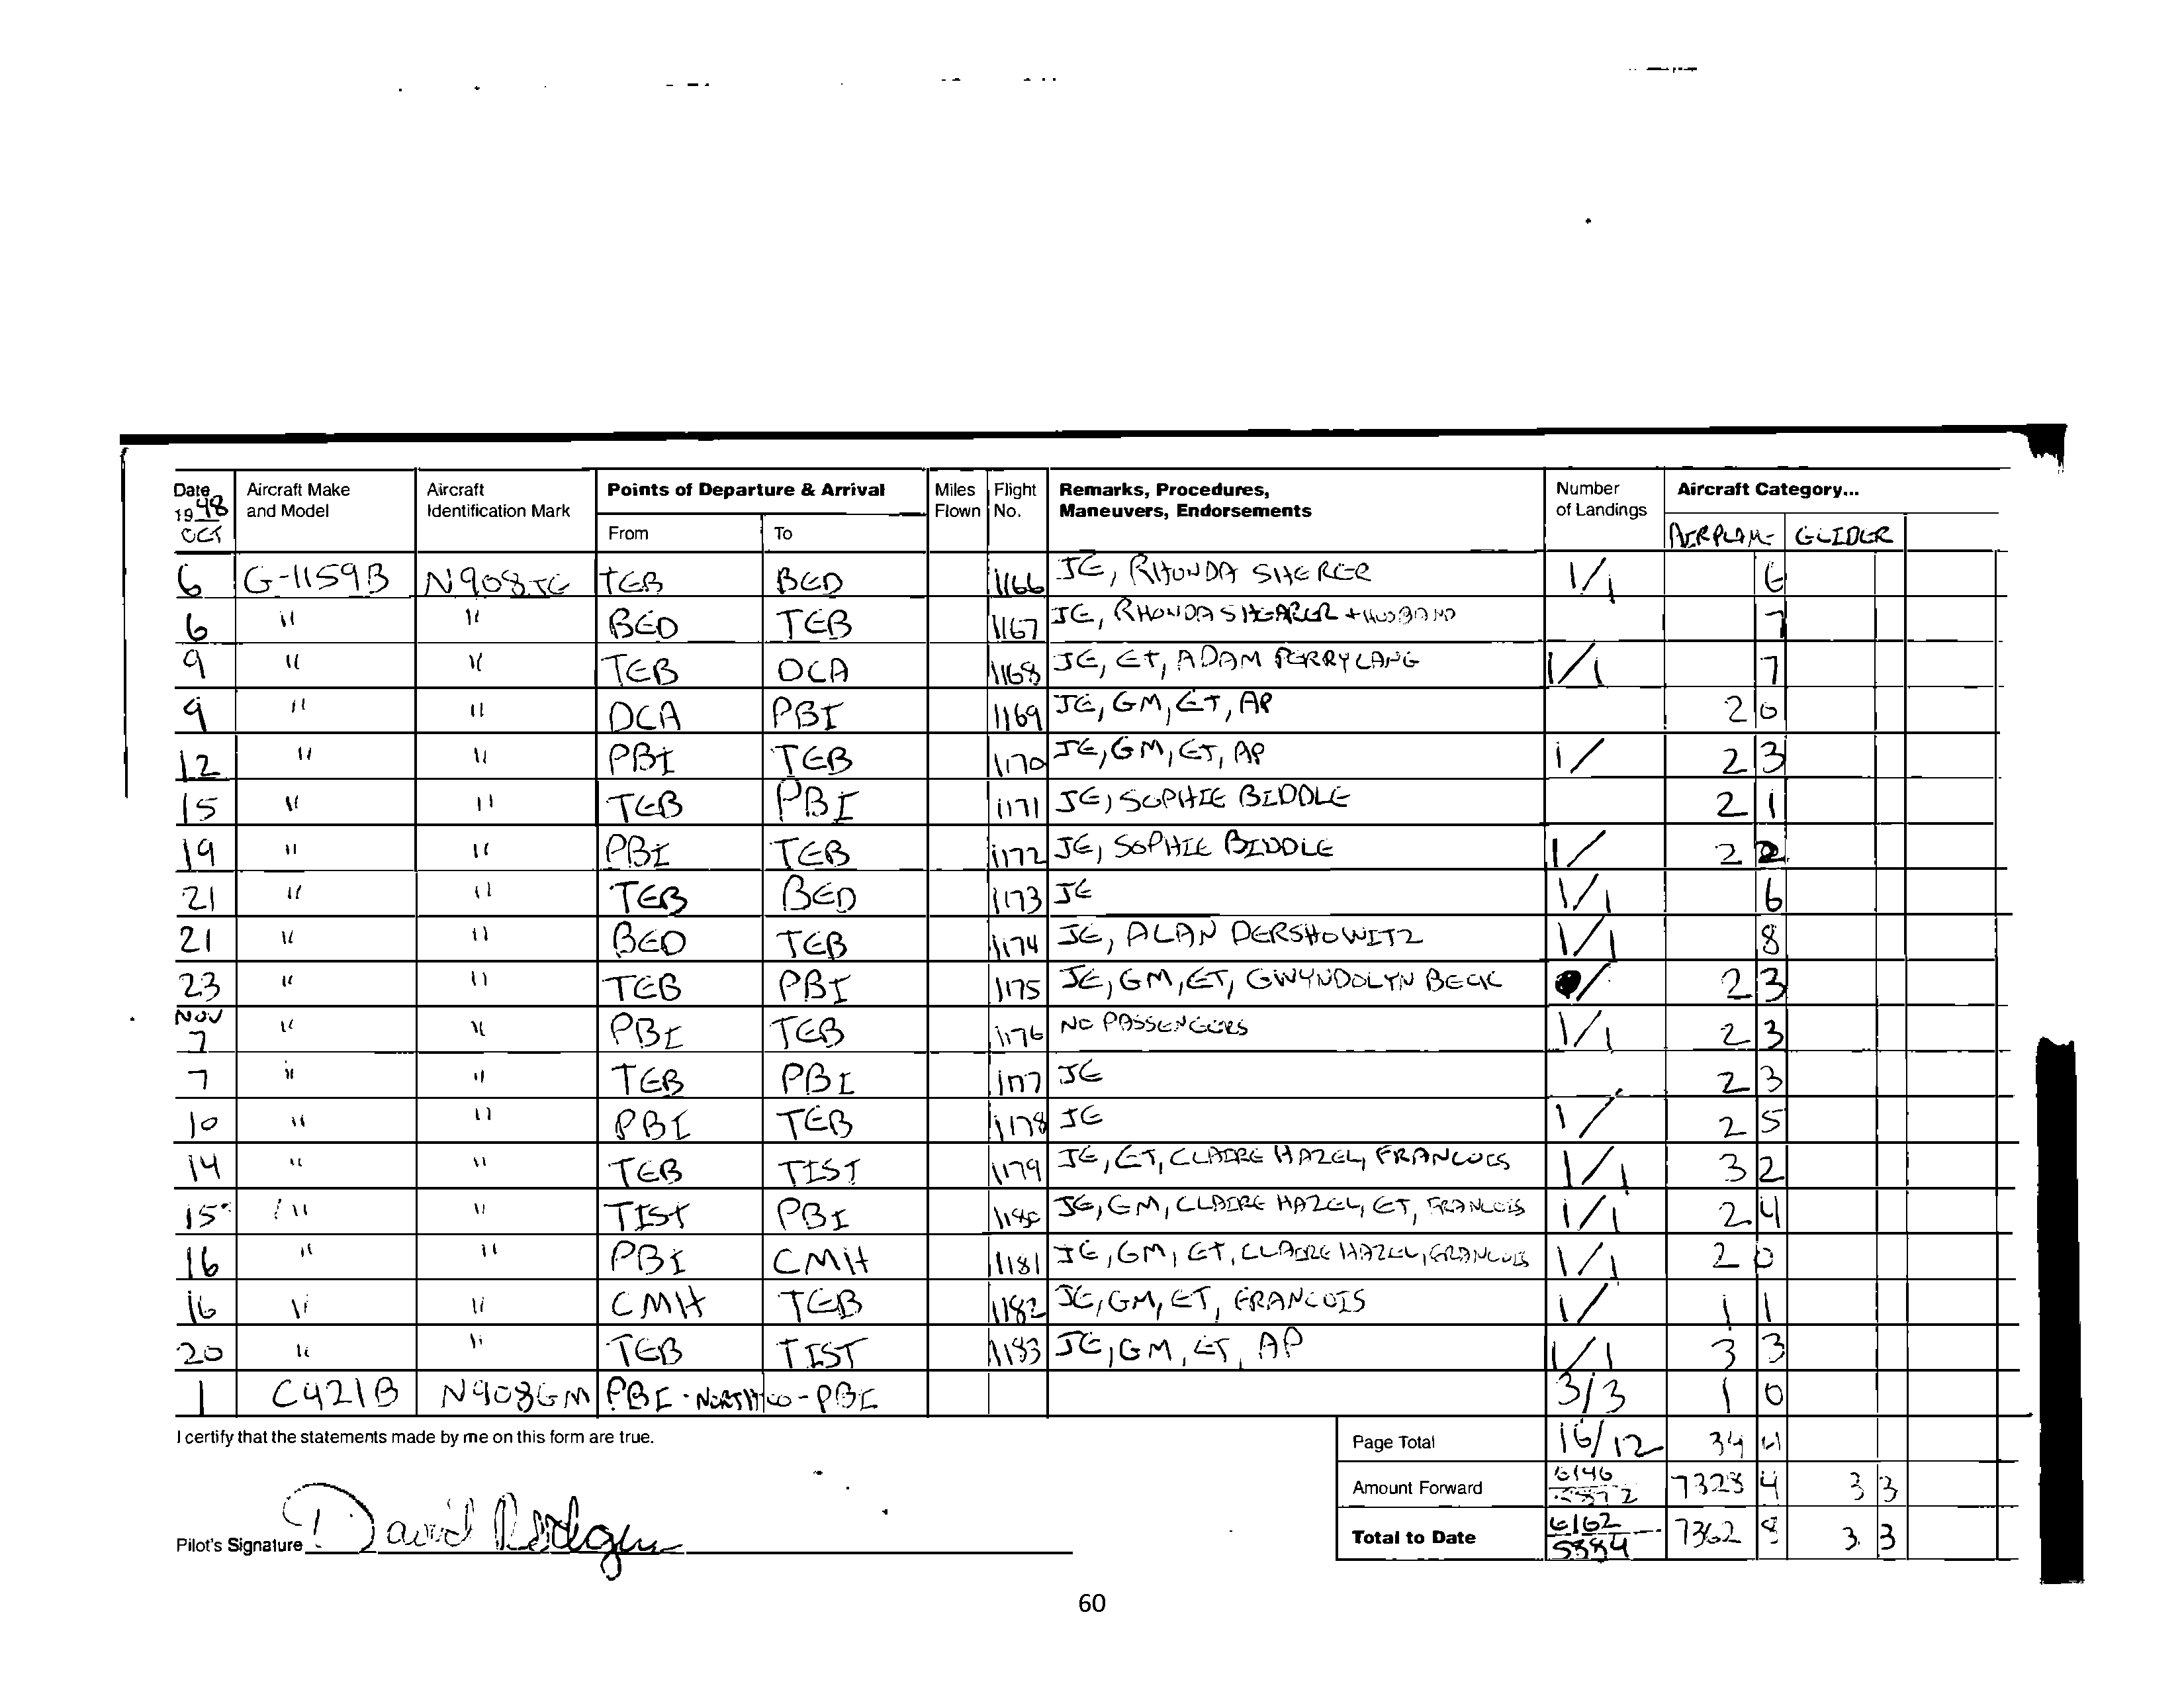 Date Aircraft Make Aircraft Points of Departure & Arrival Miles Flight Remarks, Procedures, Number Aircraft Category...
1998 and Model Identification Mark Flown No. Maneuvers, Endorsements of Landings
OCT From To AIRPLANE GLIDER
6 G-1159B N908JE TEB BED 1166 JE, RHONDA SHERER 1/1 6
6 " " BED TEB 1167 JE, RHONDA SHEARER + HUSBAND 7
9 " " TEB DCA 1168 JE, ET, ADAM PERRY LANG 1/1 7
9 " " DCA PBI 1169 JE, GM, ET, AP 2 0
12 " " PBI TEB 1170 JE, GM, ET, AP 1/ 2 3
15 " " TEB PBI 1171 JE, SOPHIE BIDDLE 2 1
19 " " PBI TEB 1172 JE, SOPHIE BIDDLE 1/ 2 2
21 " " TEB BED 1173 JE 1/1 6
21 " " BED TEB 1174 JE, ALAN DERSHOWITZ 1/1 8
23 " " TEB PBI 1175 JE, GM, ET, GWYNDOLYN BECK / 2 3
NOV
7 " " PBI TEB 1176 NO PASSENGERS 1/1 2 3
7 " " TEB PBI 1177 JE 2 3
10 " " PBI TEB 1178 JE 1/ 2 5
14 " " TEB TIST 1179 JE, ET, CLAIRE HAZEL, FRANCOIS 1/1 3 2
15 " " TIST PBI 1180 JE, GM, CLAIRE HAZEL, ET, FRANCOIS 1/1 2 4
16 " " PBI CMH 1181 JE, GM, ET, CLAIRE HAZEL, FRANCOIS 1/1 2 0
16 " " CMH TEB 1182 JE, GM, ET, FRANCOIS 1/ 1 1
20 " " TEB TIST 1183 JE, GM, ET, AP 1/1 3 3
1 C421B N908GM PBI - NORTH CO - PBI 3/3 1 0
I certify that the statements made by me on this form are true. Page Total 16/12 34 4
Amount Forward 6146 5872 7328 4 3 3
Pilot's Signature David Rodgers Total to Date 6162 5884 7362 8 3 3
60